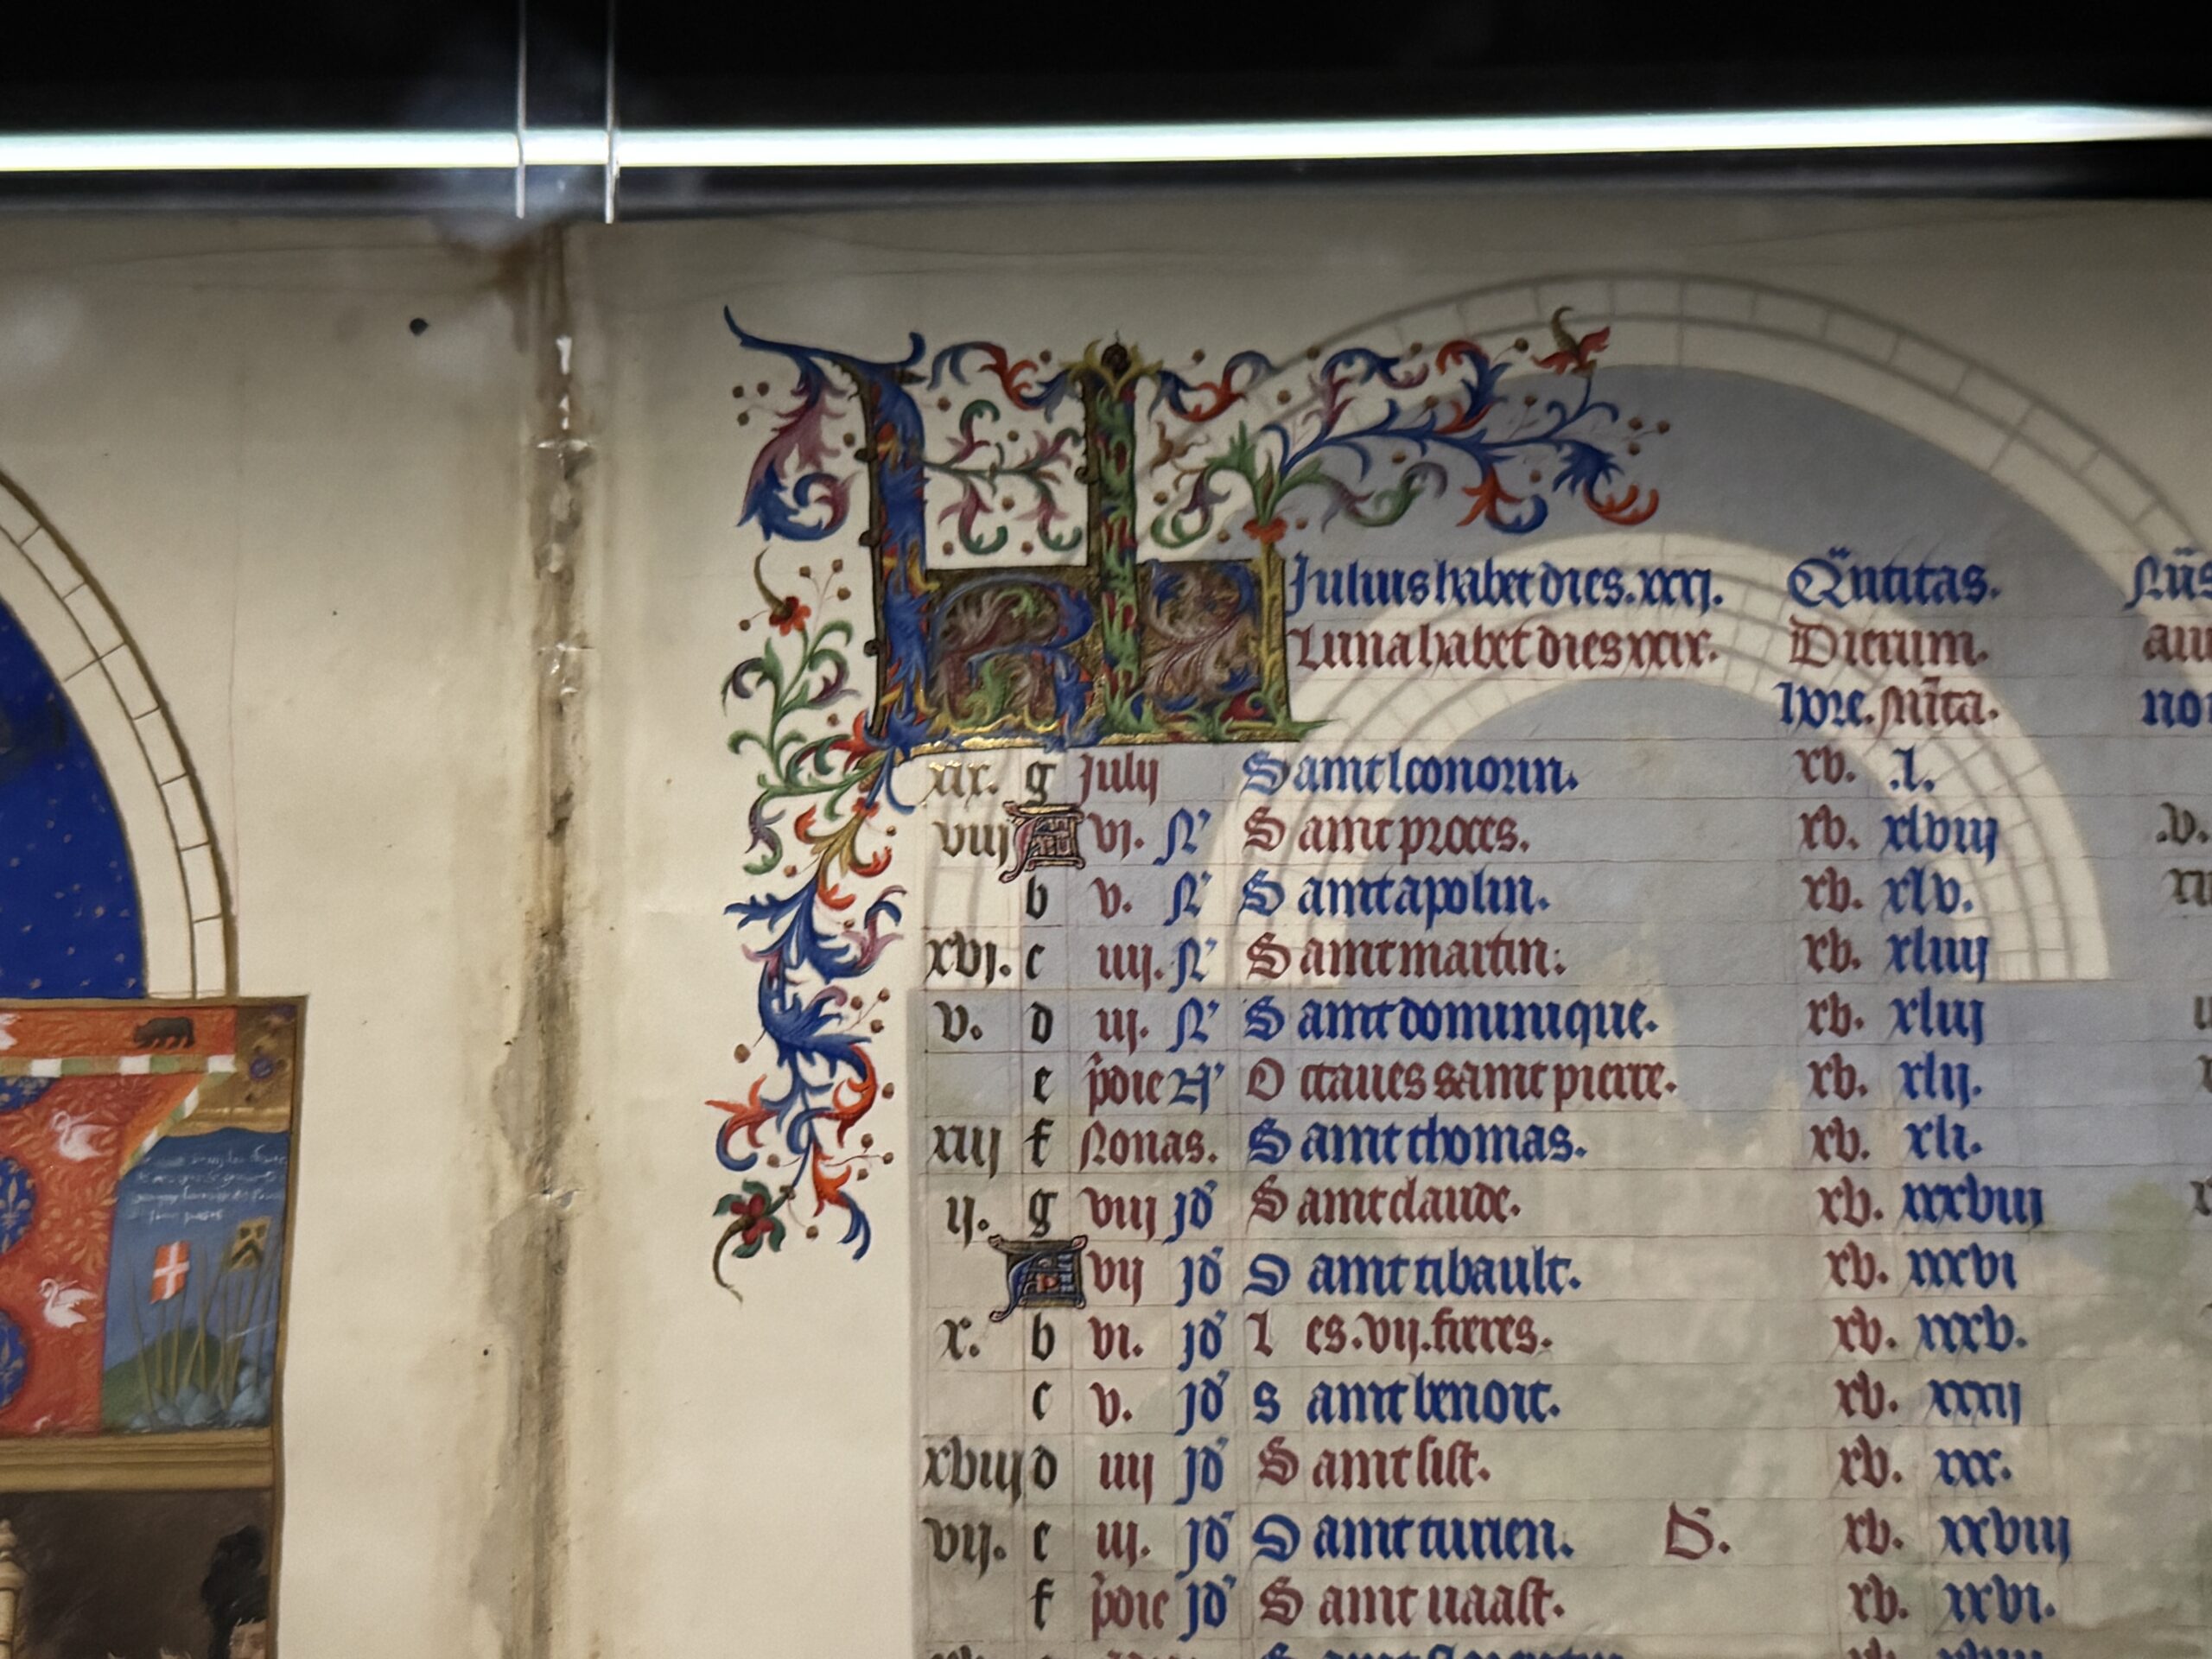 KL Julius habet dies. xxxj. Q̃ntitas. Nũs
Luna habet dies xxix. Dierum. au
hore. Mĩta. no
xix. g July Saint leonorin. xv. .l.
viij A vj. N’ Saint proces. xv. xlviij .v.
b v. N’ Saint apolin. xv. xlv.
xvj. c iiij. N’ Saint martin. xv. xliiij
v. d iij. N’ Saint dominique. xv. xliij
e p̃die N’ Octaues saint pierre. xv. xlij.
xiij f Nonas. Saint thomas. xv. xli.
ij. g viij jd’ Saint claude. xv. xxxviij
A vij jd’ Saint tibault. xv. xxxvi
x. b vi. jd’ Les. vij. freres. xv. xxxv.
c v. jd’ saint benoit. xv. xxxij
xviij d iiij jd’ Saint sist. xv. xxx.
vij. e iij. jd’ Saint turien. D. xv. xxviij
f p̃die jd’ Saint uaast. xv. xxvi.